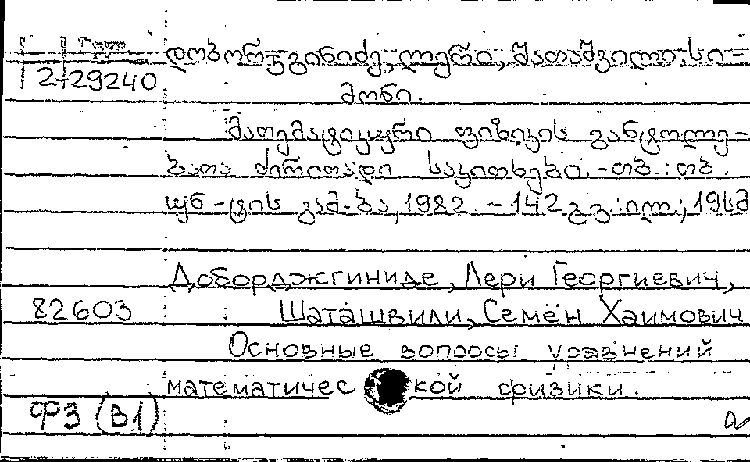 2-29240
დობორჯგინიძე, ლერი, შათაშვილი, სი-
მონი.
მათემატიკური ფიზიკის განტოლე-
ბათა ძირითადი საკითხები. -თბ.: თბ.
უნ-ტის გამ-ბა, 1982. - 142 გვ.: ილ.; 19სმ
Доборджгинидзе, Лери Георгиевич,
82603 Шаташвили, Семён Хаимович
Основные вопросы уравнений
математической физики.
ФЗ (В1)